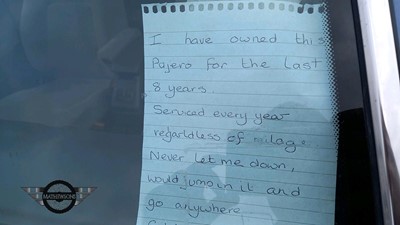 I have owned this
Pajero for the last
8 years.
Serviced every year
regardless of milage.
Never let me down,
would jump in it and
go anywhere.